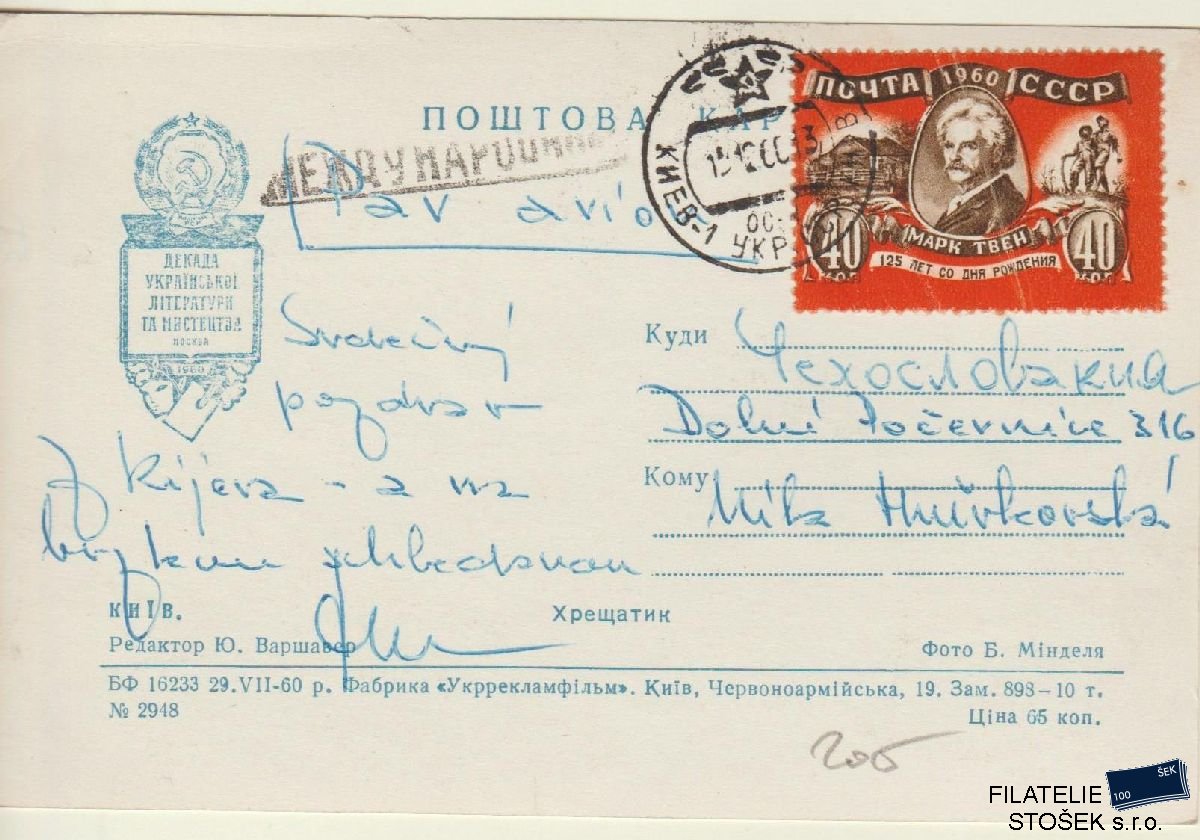 ПОШТОВА КАР
МЕЖДУНАРОДНАЯ
Par avion
ПОЧТА 1960 СССР
МАРК ТВЕН
125 ЛЕТ СО ДНЯ РОЖДЕНИЯ
40 КОП 40 КОП
КИЕВ-1 УКР
ДЕКАДА
УКРАЇНСЬКОЇ
ЛІТЕРАТУРИ
ТА МИСТЕЦТВА
МОСКВА
1960
Srdečný
pozdrav
z Kijeva - a na
brzkou shledanou
Куди Чехословакия
Dolní Počernice 316
Кому Mila
КИЇВ. Хрещатик
Редактор Ю. Варшавер Фото Б. Мінделя
БФ 16233 29.VII-60 р. Фабрика «Укррекламфільм». Київ, Червоноармійська, 19. Зам. 898—10 т.
№ 2948 Ціна 65 коп.
ŠEK
100
FILATELIE
STOŠEK s.r.o.